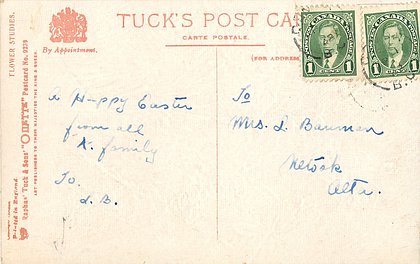 TUCK'S POST CAR
CARTE POSTALE.
By Appointment.
(FOR ADDRESS
FLOWER STUDIES.
Raphael Tuck & Sons' "OILETTE" Postcard No. 9270
ART PUBLISHERS TO THEIR MAJESTIES THE KING & QUEEN.
Printed in England.
CANADA
1 CENT 1
CANADA
1 CENT 1
A Happy Easter
from all
K. family
To.
L. B.
To
Mrs. L. Bauman
Alta.